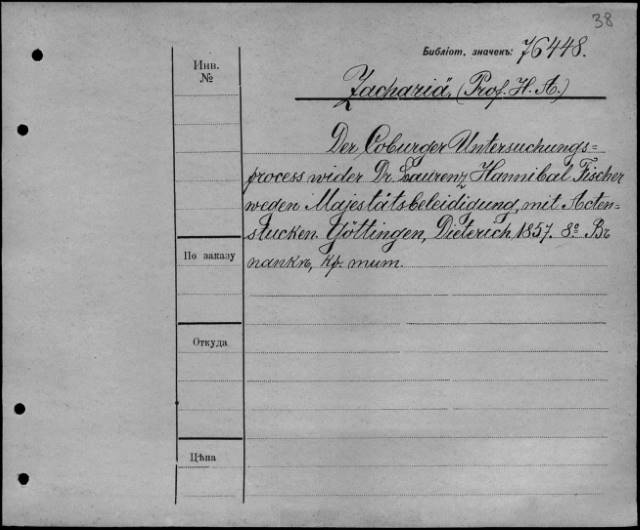 38
Библіот. значекъ: 76448.
Инв.
№
Zachariä, (Prof. H. A.)
Der Coburger Untersuchungs=
process wider Dr. Laurenz Hannibal Fischer
wegen Majestätsbeleidigung, mit Acten-
stucken. Göttingen, Dieterich, 1857. 8º Въ
папкѣ, кр. тит.
По заказу
Откуда
Цѣна